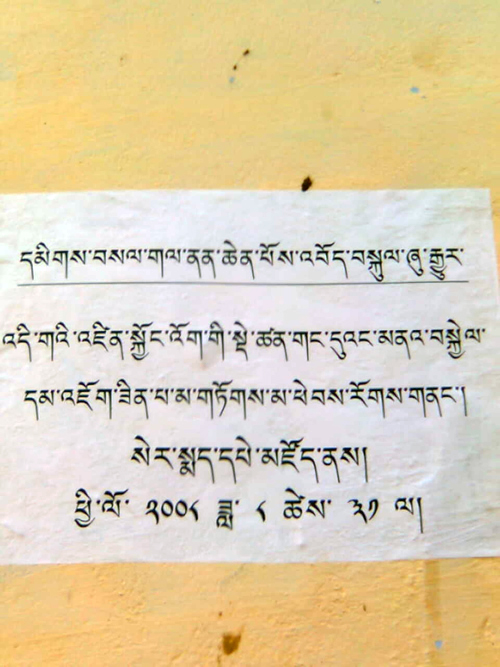 དམིགས་བསལ་གལ་ནན་ཆེན་པོས་འབོད་བསྐུལ་ཞུ་རྒྱུར་
འདི་གའི་འཛིན་སྐྱོང་འོག་གི་སྡེ་ཚན་གང་དུའང་མནའ་བསྐྱེལ་
དམ་འཇོག་ཟིན་པ་མ་གཏོགས་མ་ཕེབས་རོགས་གནང་།
སེར་སྨད་དཔེ་མཛོད་ནས།
ཕྱི་ལོ་ ༢༠༠༨ ཟླ་ ༨ ཚེས་ ༢༡ ལ།